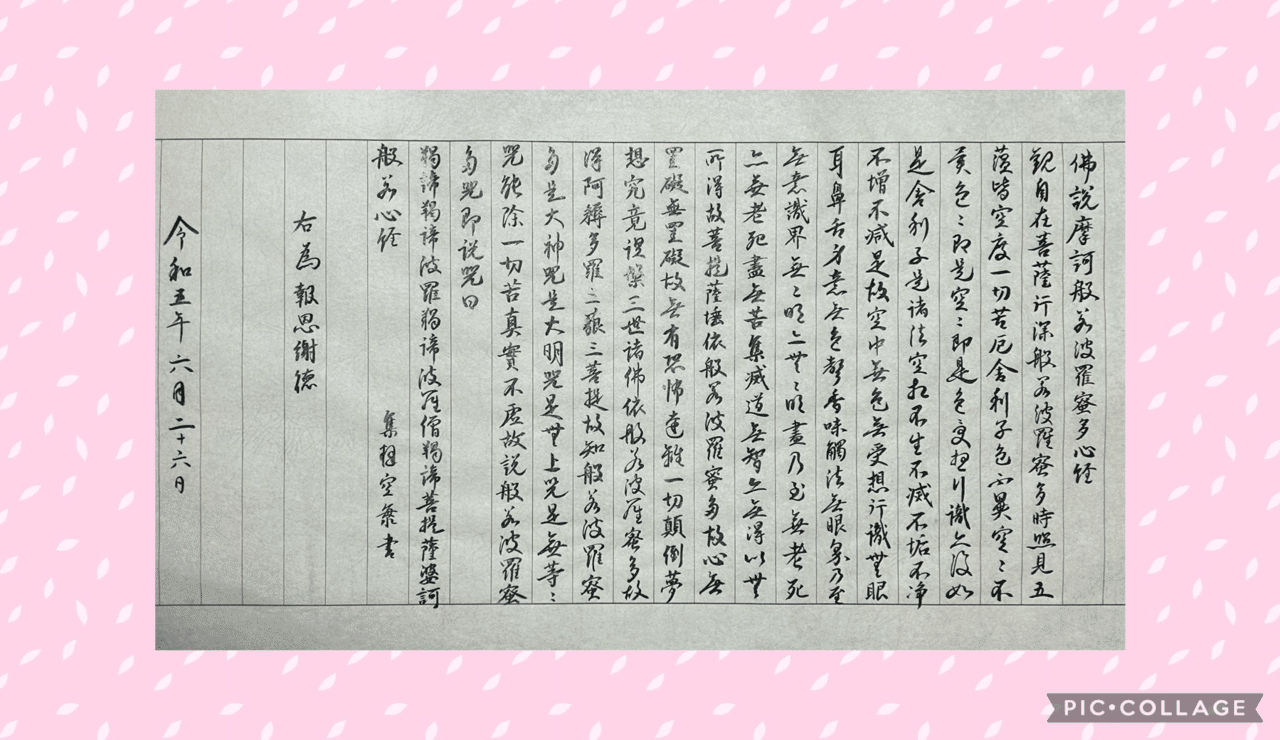 佛說摩訶般若波羅蜜多心経
観自在菩薩行深般若波羅蜜多時照見五
蘊皆空度一切苦厄舎利子色不異空〻不
異色〻即是空〻即是色受想行識亦復如
是舎利子是諸法空相不生不滅不垢不浄
不増不減是故空中無色無受想行識無眼
耳鼻舌身意無色聲香味觸法無眼界乃至
無意識界無〻明亦無〻明盡乃至無老死
亦無老死盡無苦集滅道無智亦無得以無
所得故菩提薩埵依般若波羅蜜多故心無
罣礙無罣礙故無有恐怖遠離一切顛倒夢
想究竟涅槃三世諸佛依般若波羅蜜多故
得阿耨多羅三藐三菩提故知般若波羅蜜
多是大神咒是大明咒是無上咒是無等〻
咒能除一切苦真實不虚故説般若波羅蜜
多咒即説咒曰
羯諦羯諦波羅羯諦波羅僧羯諦菩提薩婆訶
般若心経
集王空
書
右為報恩謝徳
令和五年六月二十六日
PIC•COLLAGE